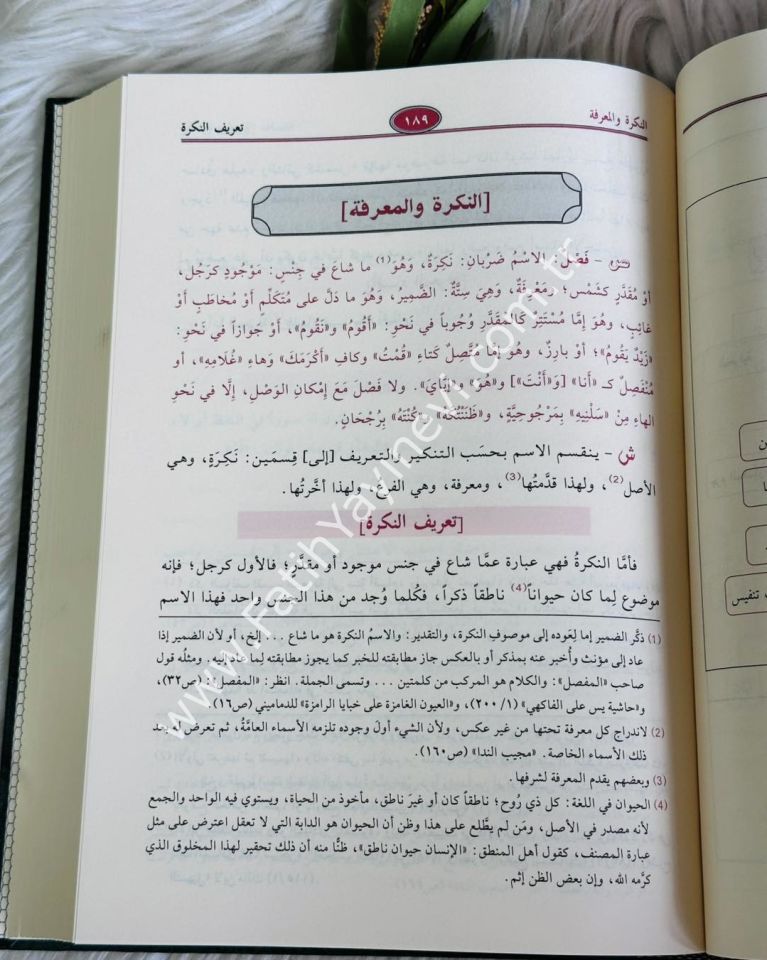 النكرة والمعرفة
١٨٩
تعريف النكرة
[النكرة والمعرفة]
ص – فَصْلٌ: الاسْمُ ضَرْبانِ: نَكِرَةٌ، وَهُوَ(١) ما شاعَ في جِنْسٍ: مَوْجُودٍ كَرَجُل،
أوْ مُقَدَّرٍ كَشَمْس؛ ومَعْرِفَةٌ، وَهِيَ سِتَّةٌ: الضَّمِيرُ، وَهُوَ ما دَلَّ على مُتَكَلِّمٍ أَوْ مُخاطَبٍ أَوْ
غائِبٍ، وهو إمَّا مُسْتَتِرٌ كَالمُقَدَّرِ وُجُوباً في نَحْوِ: «أَقُومُ» و«نَقُومُ»، أَوْ جَوازاً في نَحْوِ:
«زَيْدٌ يَقُومُ»؛ أوْ بارِزٌ، وهو إمَّا مُتَّصِلٌ كتاءِ «قُمْتُ» وكافِ «أَكْرَمَكَ» وَهاءِ «غُلَامِهِ»، أو
مُنْفَصِلٌ كـ «أنا» [وَ«أَنْتَ»] و«هُوَ» و«إيَّايَ». ولا فَصْلَ مَعَ إمْكانِ الوَصْلِ، إلَّا في نَحْوِ
الهاءِ مِنْ «سَلْنِيهِ» بِمَرْجُوحِيَّةٍ، و«ظَنَنْتُكَهُ» و«كُنْتَهُ» بِرُجْحَانٍ.
ش – ينقسم الاسم بحسَب التنكير والتعريف [إلى] قِسمَين: نَكِرَةٍ، وهي
الأصل(٢)، ولهذا قدَّمتُها(٣)، ومعرفة، وهي الفرعُ، ولهذا أخَّرتُها.
[تعريف النكرة]
فأمَّا النكرةُ فهي عبارة عمَّا شاع في جنس موجود أو مقدَّر؛ فالأول كرجل؛ فإنه
موضوع لِما كان حيواناً(٤) ناطقاً ذكراً، فكلما وُجد من هذا الجنس واحد فهذا الاسم
(١) ذكَّر الضمير إما لِعوده إلى موصوفِ النكرة، والتقدير: والاسمُ النكرة هو ما شاع ... إلخ، أو لأن الضمير إذا
عاد إلى مؤنث وأُخبر عنه بمذكر أو بالعكس جاز مطابقته للخبر كما يجوز مطابقته لِما عاد إليه. ومثلُه قول
صاحب «المفصل»: والكلام هو المركب من كلمتين ... وتسمى الجملة. انظر: «المفصل»: (ص٣٢)،
و«حاشية يس على الفاكهي» (١/ ٢٠٠)، و«العيون الغامزة على خبايا الرامزة» للدماميني (ص١٦).
(٢) لاندراج كل معرفة تحتها من غير عكس، ولأن الشيء أولَ وجوده تلزمه الأسماء العامَّةُ، ثم تعرض له بعد
ذلك الأسماء الخاصة. «مجيب الندا» (ص١٦٠).
(٣) وبعضهم يقدم المعرفة لشرفها.
(٤) الحيوان في اللغة: كل ذي رُوح؛ ناطقاً كان أو غيرَ ناطق، مأخوذ من الحياة، ويستوي فيه الواحد والجمع
لأنه مصدر في الأصل، ومَن لم يطَّلع على هذا وظن أن الحيوان هو الدابة التي لا تعقل اعترض على مثل
عبارة المصنف، كقول أهل المنطق: «الإنسان حيوان ناطق»، ظنًّا منه أن ذلك تحقير لهذا المخلوق الذي
كرَّمه الله، وإن بعض الظن إثم.
www.FatihYayinevi.com.tr